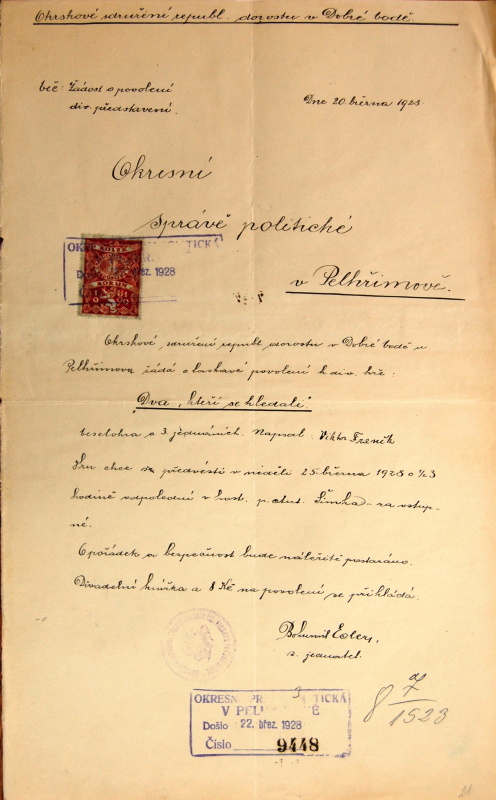 Okrskové sdružení republ. dorostu v Dobré Vodě.
Věc: Žádost o povolení
div. představení.
Dne 20. března 1928.
Okresní
správě politické
v Pelhřimově.
KOLEK
KORUN
OKRES TICKÁ
Došlo břez. 1928
Okrskové sdružení republ. dorostu v Dobré Vodě u
Pelhřimova žádá o laskavé povolení k div. hře:
"Dva, kteří se hledali"
veselohra o 3 jednáních. Napsal: Viktor
Hru chce předvésti v neděli 25. března 1928 o ½3
hodině odpolední v host. p. Ant. Šimka – za vstup-
né.
O pořádek a bezpečnost bude náležitě postaráno.
Divadelní knížka a 8 Kč na povolení se přikládá.
Bohumil
t. jednatel.
OKRESN PR TICKÁ
V PEL
Došlo 22. břez. 1928
Číslo 9448
8 7/1528
21